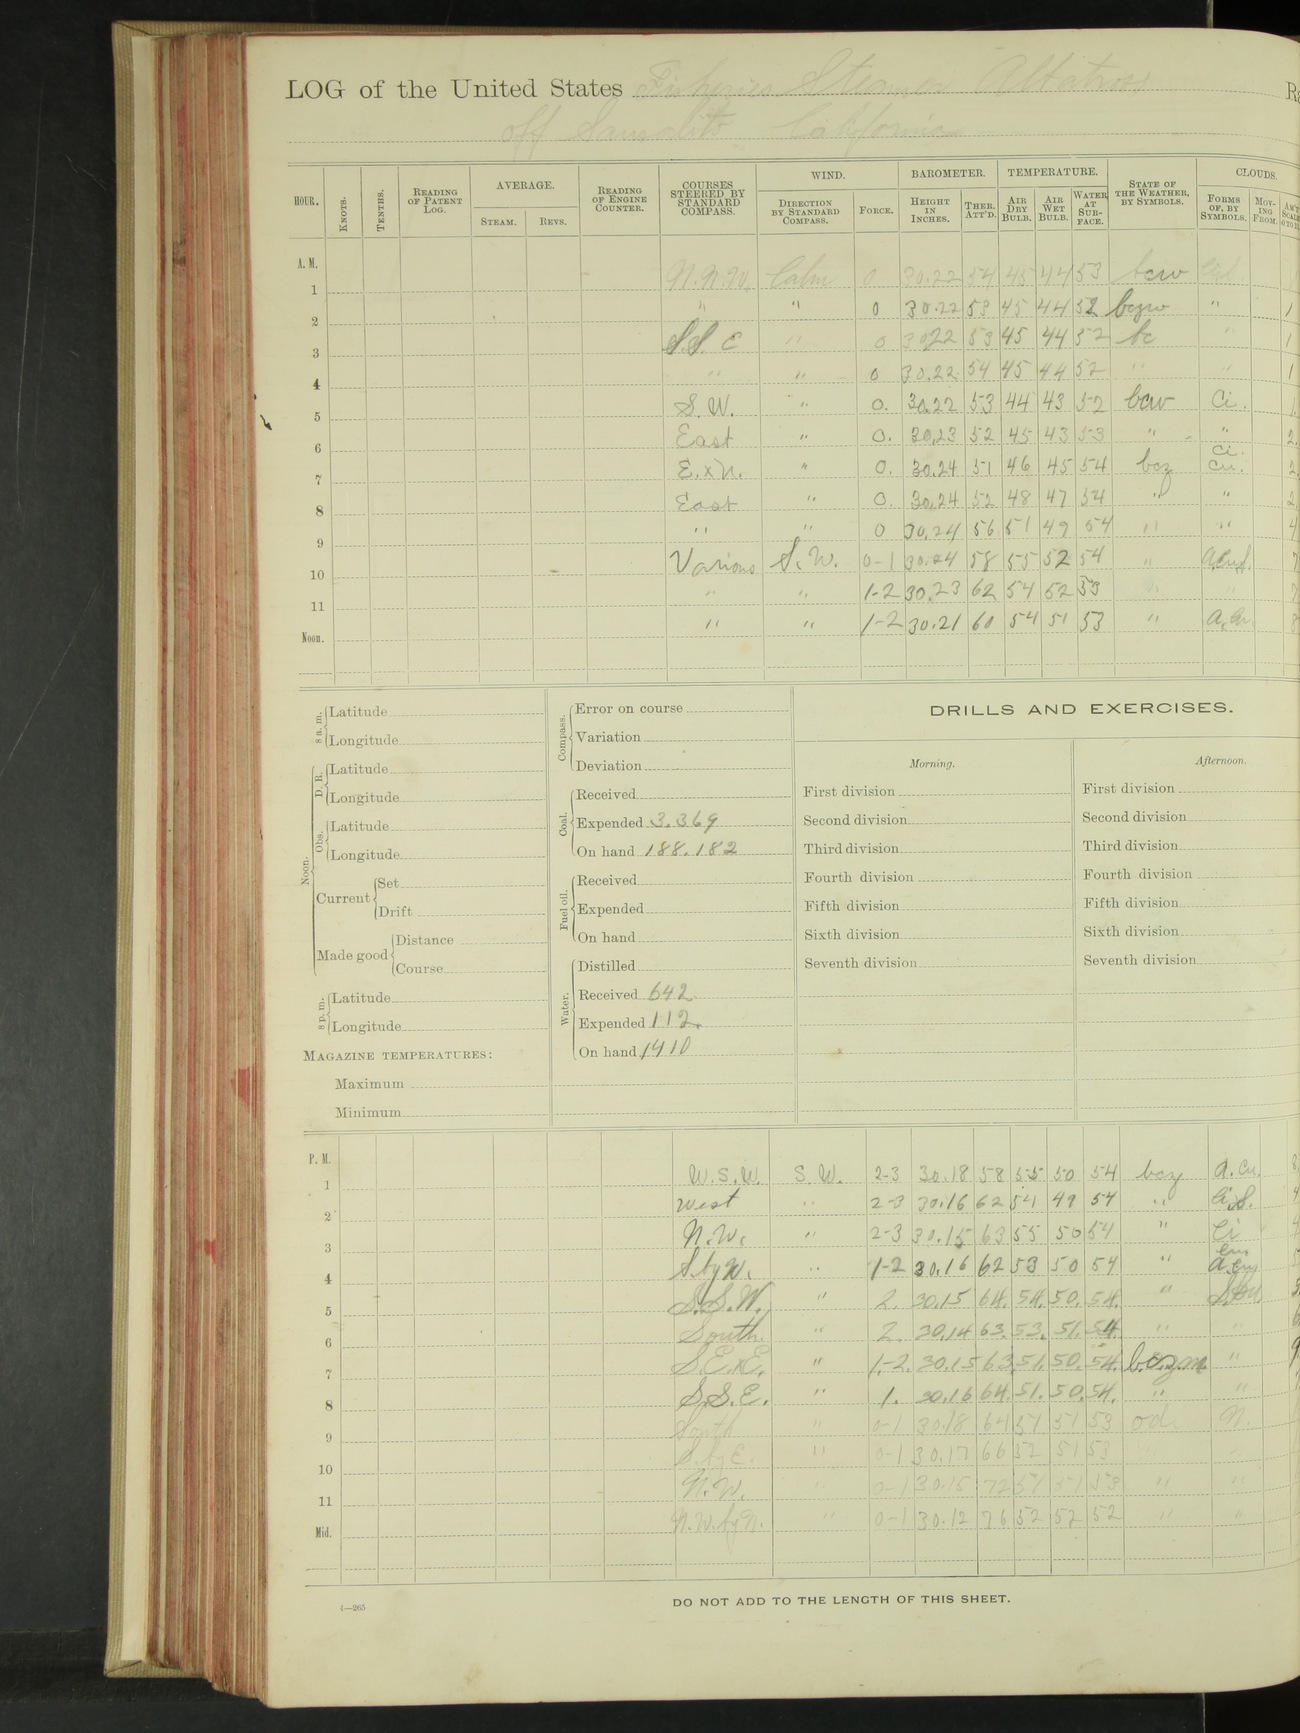 LOG of the United States Fisheries Steamer Albatross Ra
off Sausalito California
HOUR. KNOTS. TENTHS. READING OF PATENT LOG. AVERAGE. STEAM. REVS. READING OF ENGINE COUNTER. COURSES STEERED BY STANDARD COMPASS. WIND. DIRECTION BY STANDARD COMPASS. FORCE. BAROMETER. HEIGHT IN INCHES. THER. ATT'D. TEMPERATURE. AIR DRY BULB. AIR WET BULB. WATER AT SURFACE. STATE OF THE WEATHER, BY SYMBOLS. CLOUDS. FORMS OF, BY SYMBOLS. MOVING FROM.
A. M.
1 N.N.W. Calm 0 30.22 54 45 44 53 bcw
2 " " 0 30.22 53 45 44 52 bcw "
3 S.S.E " 0 30.22 53 45 44 52 bc "
4 " " 0 30.22 54 45 44 52 " "
5 S.W. " 0. 30.22 53 44 43 52 bcw Ci.
6 East " 0. 30.23 52 45 43 53 " "
7 E.xN. " 0. 30.24 51 46 45 54 bcz Ci. Cu.
8 East " 0. 30.24 52 48 47 54 " "
9 " " 0 30.24 56 51 49 54 " "
10 Various S.W. 0-1 30.24 58 55 52 54 "
11 " " 1-2 30.23 62 54 52 53 "
Noon. " " 1-2 30.21 60 54 51 53 " A.Cu.
8 a. m. Latitude
Longitude
Noon. D. R. Latitude
Longitude
Obs. Latitude
Longitude
Current Set
Drift
Made good Distance
Course
8 p. m. Latitude
Longitude
MAGAZINE TEMPERATURES:
Maximum
Minimum
Compass. Error on course
Variation
Deviation
Coal. Received
Expended 3.369
On hand 188.182
Fuel oil. Received
Expended
On hand
Water. Distilled
Received 642
Expended 112.
On hand 1410
DRILLS AND EXERCISES.
Morning.
First division
Second division
Third division
Fourth division
Fifth division
Sixth division
Seventh division
Afternoon.
First division
Second division
Third division
Fourth division
Fifth division
Sixth division
Seventh division
P. M.
1 W.S.W. S.W. 2-3 30.18 58 55 50 54 bcz A.Cu.
2 West " 2-3 30.16 62 54 49 54 " Ci.S.
3 N.W. " 2-3 30.15 63 55 50 54 " Ci
4 S.byW. " 1-2 30.16 62 53 50 54 "
5 S.S.W. " 2. 30.15 64. 54. 50. 54. "
6 South. " 2. 30.14 63. 53. 51. 54. " "
7 S.E.xE. " 1-2. 30.15 63. 51. 50. 54. b.c.z.m. "
8 S.S.E. " 1. 30.16 64. 51. 50. 54. " "
9 South " 0-1 30.18 64 51 51 53 od. N.
10 S.byE. " 0-1 30.17 66 52 51 53
11 N.W. " 0-1 30.15 72 51 51 53 " "
Mid. N.W.byN. " 0-1 30.12 76 52 52 52 " "
4—265
DO NOT ADD TO THE LENGTH OF THIS SHEET.